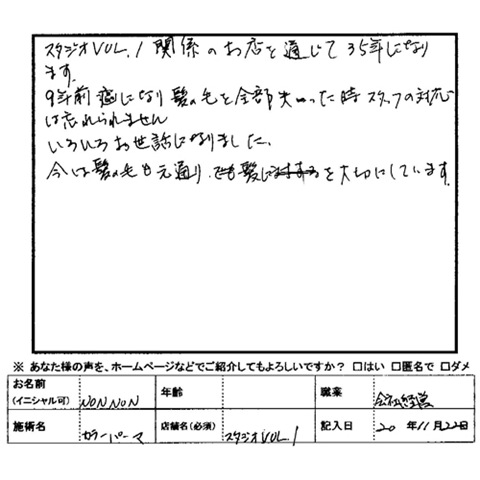 スタジオVOL.1関係のお店を通じて35年になり
ます。
9年前癌になり髪の毛を全部失った時スタッフの対応
は忘れられません
いろいろお世話になりました。
今は髪の毛も元通り、でも髪に対するを大切にしています。
※ あなた様の声を、ホームページなどでご紹介してもよろしいですか? □はい □匿名で □ダメ
お名前
(イニシャル可) NONNON 年齢 職業 会社経営
施術名 カラーパーマ 店舗名(必須) スタジオVOL.1 記入日 20年11月22日